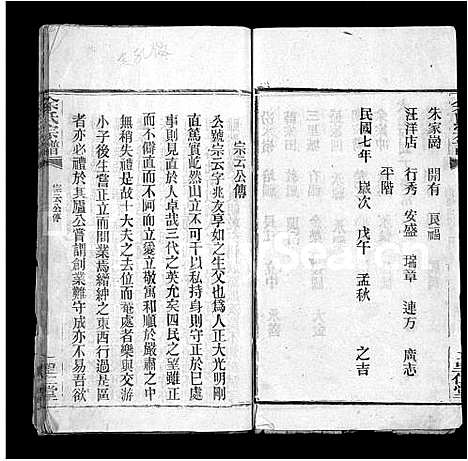 朱家崗 開有 良福
汪洋店 行秀 安盛 瑞章 連方 廣志
平階
民國七年 歲次 戊午 孟秋 之吉
宗云公傳
公號宗云字兆友享如之生父也為人正大光明剛
直篤實屹然山立不可以干以私持身則守正於已處
事則見直於人卓哉三代之英尤矣四民之望雖正
而不僻直而不迎面立愛立敬寓和順於嚴肅之中
無稍失禮是故士大夫之去位而菴處者樂與交游
小子後生嘗正立而聞業焉縉紳之東西行過是區
者亦必禮於其廬公嘗謂創業難守成亦不易吾欲
余氏宗譜
宗云公傳